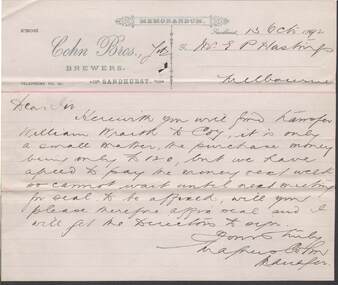 MEMORANDUM.
Sandhurst, 13 Oct 1892
Cohn Bros.,
To Mr E P Hastings
BREWERS.
SANDHURST,
Melbourne
Dear Sir
Herewith you will find transfer
William to Coy, it is only
a small matter, the purchase money
being only £120, but we have
agreed to pay the money next week
so cannot wait until next meeting
for seal to be affixed, will you
please therefore affix seal and I
will get the Directors to sign
Yours truly
Cohn
Manager